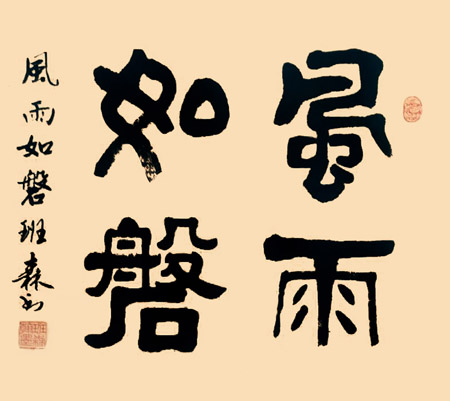 風雨
如磐
風雨如磐班森